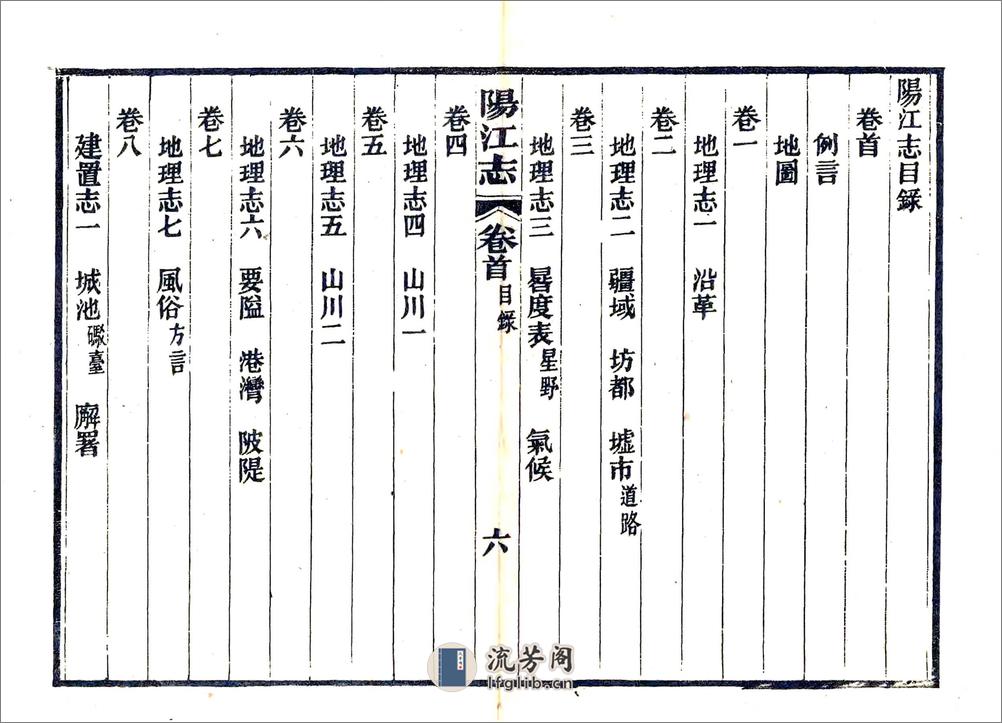 陽江志目錄
卷首
例言
地圖
卷一
地理志一　沿革
卷二
地理志二　疆域　坊都　墟市道路
卷三
地理志三　晷度表星野　氣候
陽江志　卷首目錄　六
卷四
地理志四　山川一
卷五
地理志五　山川二
卷六
地理志六　要隘　港灣　陂隄
卷七
地理志七　風俗方言
卷八
建置志一　城池礮臺　廨署
流芳阁
lfglib.cn